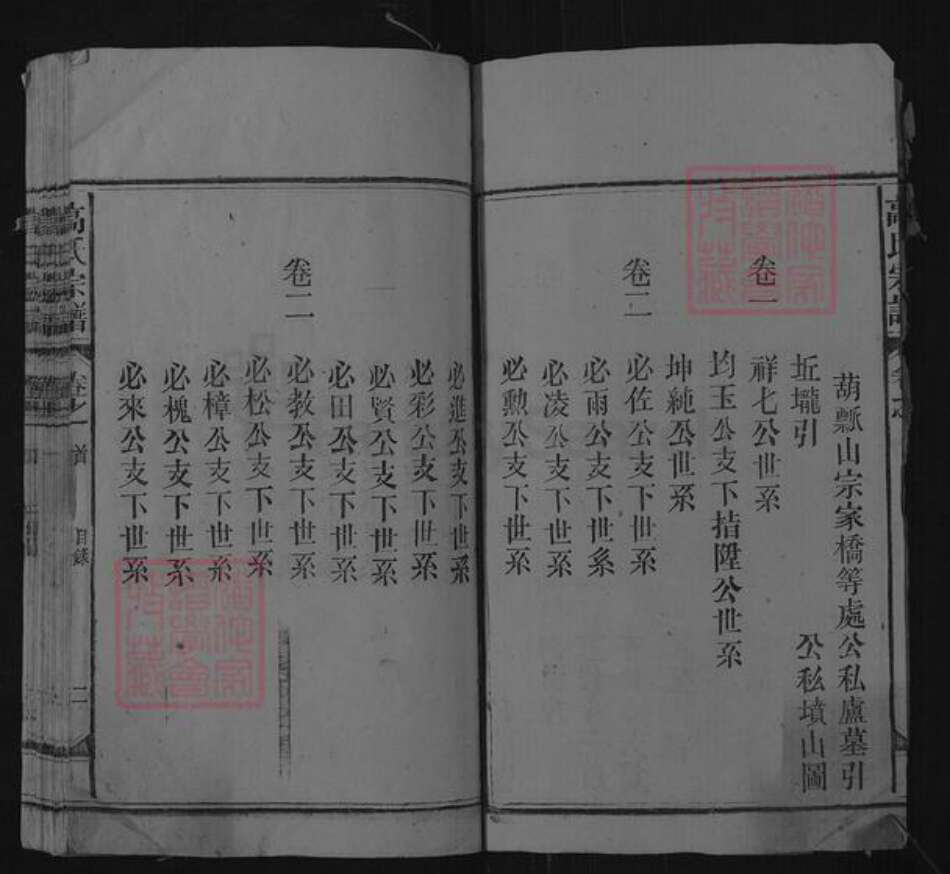 高氏宗譜
葫瓢山宗家橋等處公私廬墓引
坵壠引 公私墳山圖
卷一
祥七公世系
均玉公支下措陞公世系
坤純公世系
卷二
必佐公支下世系
必雨公支下世系
必凌公支下世系
必勲公支下世系
必進公支下世系
必彩公支下世系
必賢公支下世系
必田公支下世系
卷二
必教公支下世系
必松公支下世系
必樟公支下世系
必槐公支下世系
必來公支下世系
高氏宗譜 卷之首 目錄 二